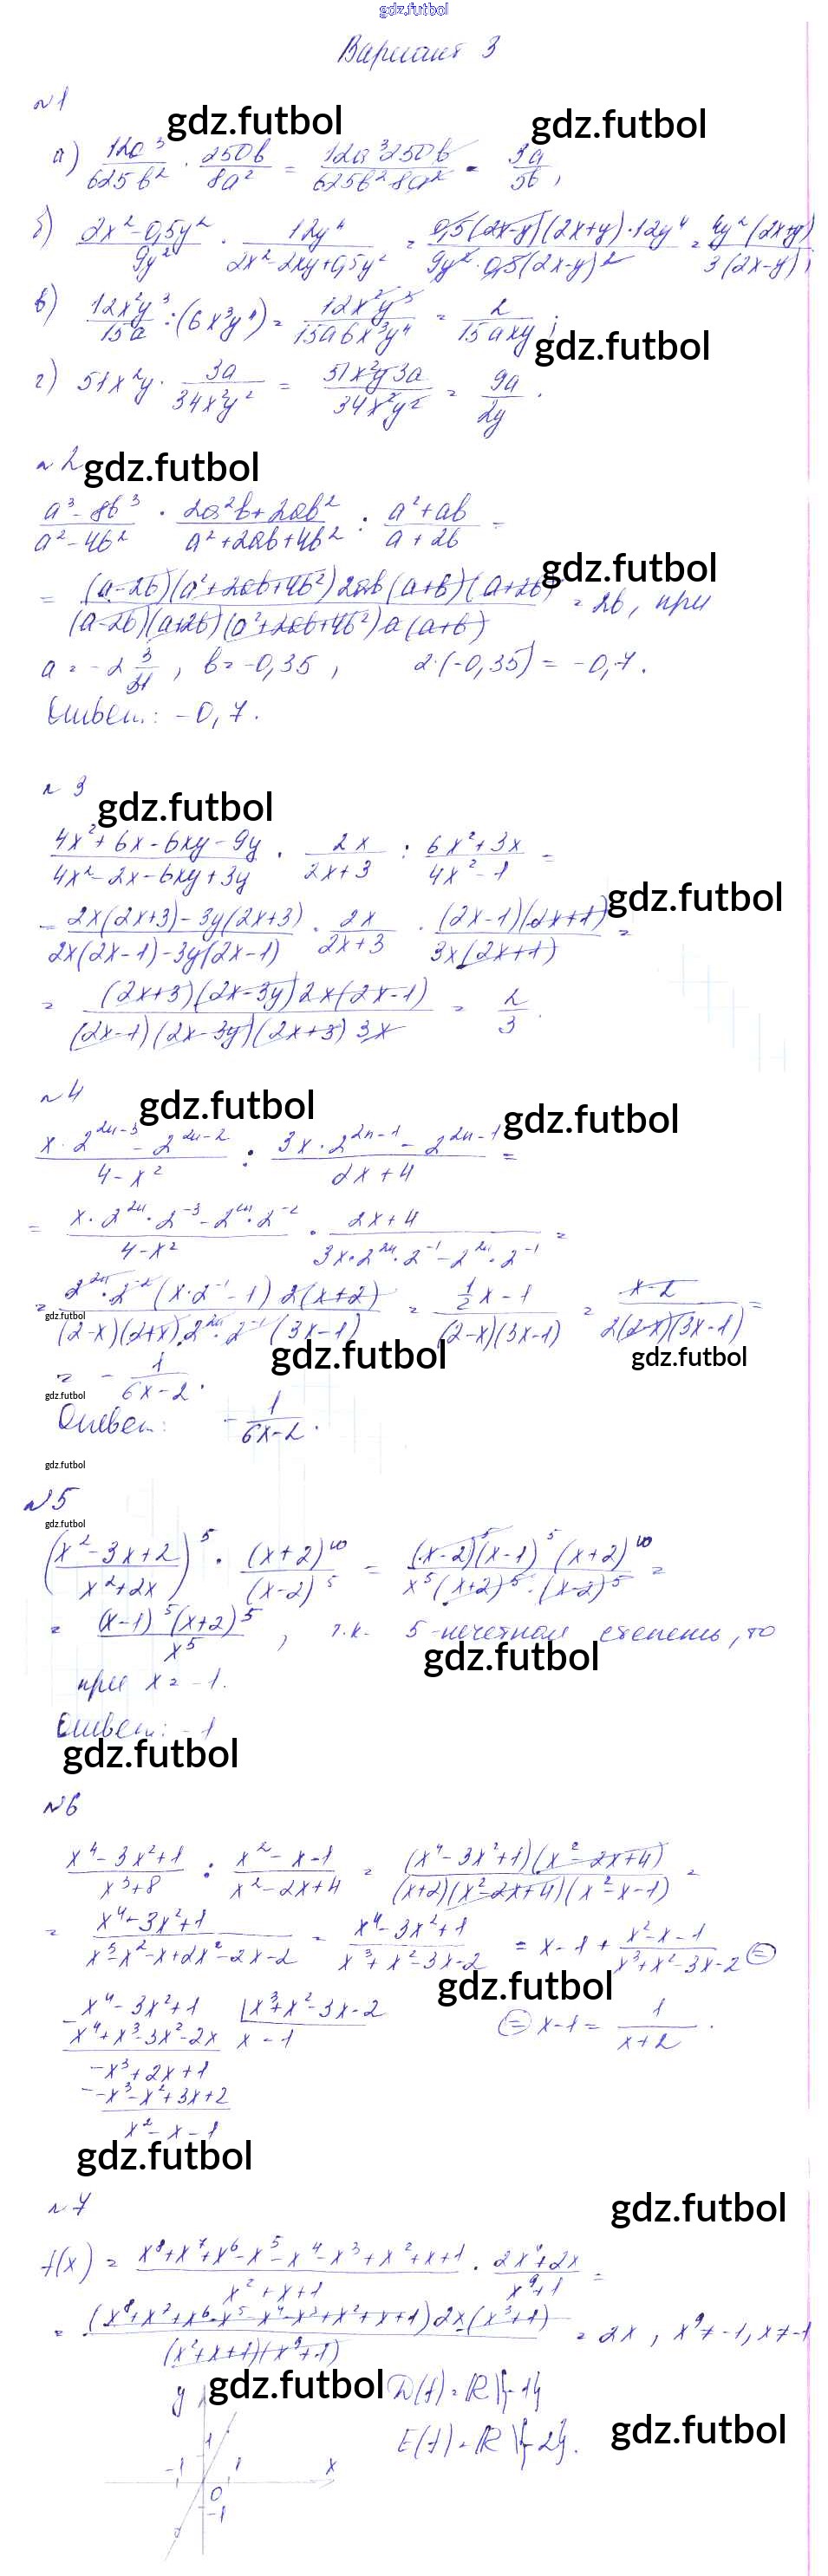 gdz.futbol
Вариант 3
№1
gdz.futbol gdz.futbol
а) 12a³/625b² · 250b/8a² = 12a³250b/625b²8a² = 3a/5b,
б) 2x²-0,5y²/9y² · 12y⁴/2x²-2xy+0,5y² = 0,5(2x-y)(2x+y)·12y⁴/9y²·0,5(2x-y)² = 4y²(2x+y)/3(2x-y);
в) 12x²y³/15a : (6x³y⁴) = 12x²y³/15a6x³y⁴ = 2/15axy;
gdz.futbol
г) 51x²y · 3a/34x²y² = 51x²y3a/34x²y² = 9a/2y.
№2 gdz.futbol
a³-8b³/a²-4b² · 2a²b+2ab²/a²+2ab+4b² : a²+ab/a+2b =
gdz.futbol
= (a-2b)(a²+2ab+4b²)2ab(a+b)(a+2b)/(a-2b)(a+2b)(a²+2ab+4b²)a(a+b) = 2b, при
a = -2 3/31, b = -0,35, 2·(-0,35) = -0,7.
Ответ: -0,7.
№3
gdz.futbol
4x²+6x-6xy-9y/4x²-2x-6xy+3y · 2x/2x+3 : 6x²+3x/4x²-1 =
gdz.futbol
= 2x(2x+3)-3y(2x+3)/2x(2x-1)-3y(2x-1) · 2x/2x+3 · (2x-1)(2x+1)/3x(2x+1) =
= (2x+3)(2x-3y)2x(2x-1)/(2x-1)(2x-3y)(2x+3)3x = 2/3.
№4
gdz.futbol gdz.futbol
x·2²ⁿ⁻³-2²ⁿ⁻²/4-x² : 3x·2²ⁿ⁻¹-2²ⁿ⁻¹/2x+4 =
= x·2²ⁿ·2⁻³-2²ⁿ·2⁻²/4-x² · 2x+4/3x·2²ⁿ·2⁻¹-2²ⁿ·2⁻¹ =
= 2²ⁿ·2⁻²(x·2⁻¹-1)2(x+2)/(2-x)(2+x)·2²ⁿ·2⁻¹(3x-1) = 1/2x-1/(2-x)(3x-1) = x-2/2(2-x)(3x-1) =
gdz.futbol
gdz.futbol gdz.futbol
= -1/6x-2.
gdz.futbol
Ответ: -1/6x-2.
gdz.futbol
№5
gdz.futbol
(x²-3x+2/x²+2x)⁵ · (x+2)¹⁰/(x-2)⁵ = (x-2)⁵(x-1)⁵(x+2)¹⁰/x⁵(x+2)⁵·(x-2)⁵ =
= (x-1)⁵(x+2)⁵/x⁵, т.к. 5-нечетная степень, то
gdz.futbol
при x = -1.
Ответ: -1
gdz.futbol
№6
x⁴-3x²+1/x³+8 : x²-x-1/x²-2x+4 = (x⁴-3x²+1)(x²-2x+4)/(x+2)(x²-2x+4)(x²-x-1) =
= x⁴-3x²+1/x³-x²-x+2x²-2x-2 = x⁴-3x²+1/x³+x²-3x-2 = x-1+x²-x-1/x³+x²-3x-2 =
gdz.futbol
-x⁴-3x²+1 x³+x²-3x-2
x⁴+x³-3x²-2x x-1
= x-1= 1/x+2.
-x³+2x+1
--x³-x²+3x+2
x²-x-1
gdz.futbol
№7
gdz.futbol
f(x) = x⁸+x⁷+x⁶-x⁵-x⁴-x³+x²+x+1/x²+x+1 · 2x⁴+2x/x⁹+1 =
= (x⁸+x⁷+x⁶-x⁵-x⁴-x³+x²+x+1)2x(x³+1)/(x²+x+1)(x⁹+1) = 2x, x⁹≠-1, x≠-1
y gdz.futbol D(f) = R\{-1}
gdz.futbol
E(f) = R\{-2}.
1
-1 1 x
0
-1